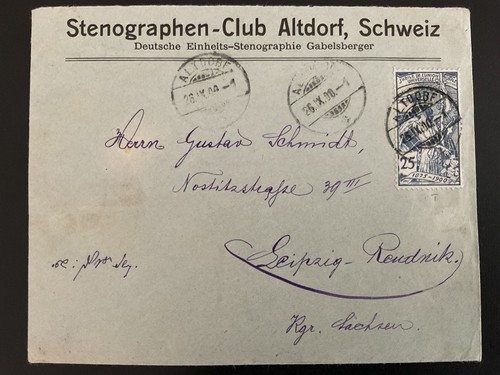 Stenographen-Club Altdorf, Schweiz
Deutsche Einheits-Stenographie Gabelsberger
ALTDORF
26.IX.00.-1
ALTDORF
26.IX.00.-1
ALTDORF
26.IX.00.-1
25
1875-1900
Herrn Gustav Schmidt,
Nostitzstraße 39 III
Leipzig-Reudnik.
Kgr. Sachsen.